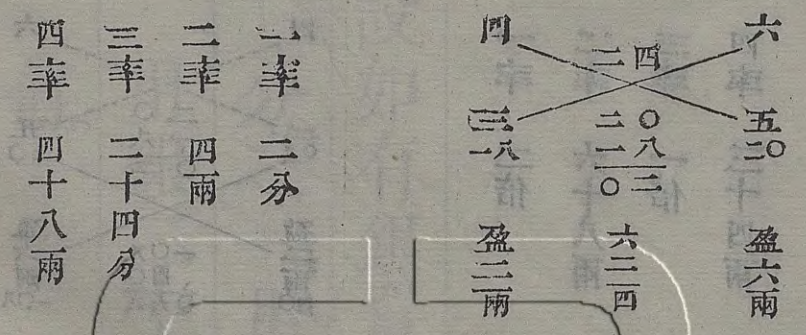 六 五 二〇 盈六兩
二四
二〇
一八
〇二
六二四
四 三 一八 盈二兩
一率 二分
二率 四兩
三率 二十四分
四率 四十八兩